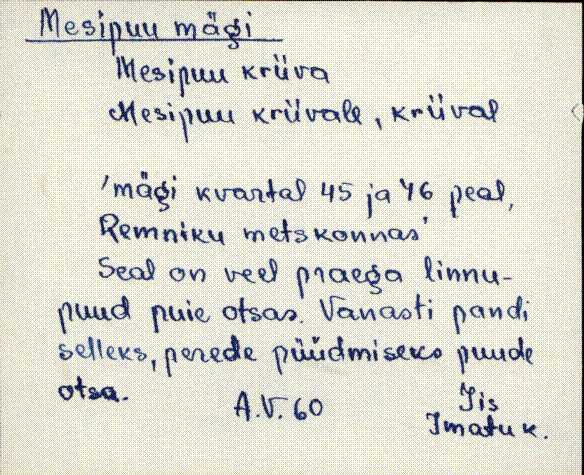 Mesipuu mägi
Mesipuu kriiva
Mesipuu kriivale, kriival
'mägi kvartal 45 ja 46 peal,
Remniku metskonnas'
Seal on veel praega linnu-
puud puie otsas. Vanasti pandi
selleks, perede püüdmiseks puude
otsa.
A.V. 60
Iis
Imatu k.